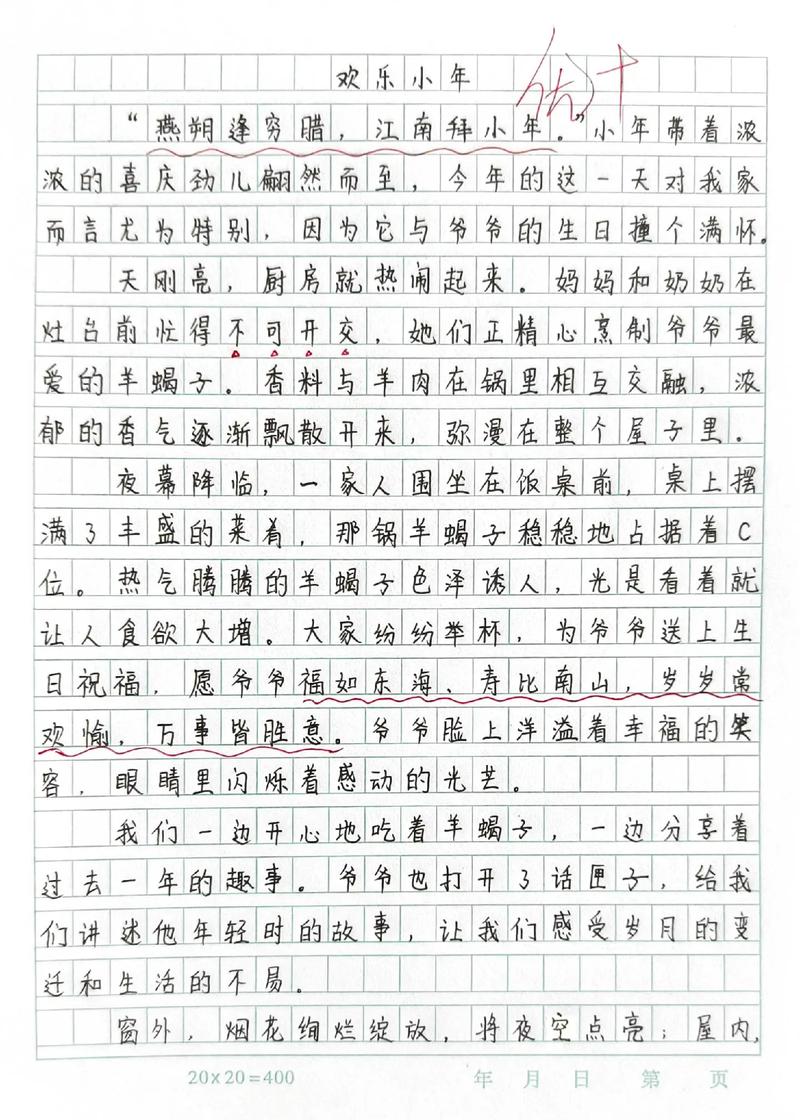 欢乐小年
优+
“燕朔逢穷腊，江南拜小年。”小年带着浓
浓的喜庆劲儿翩然而至，今年的这一天对我家
而言尤为特别，因为它与爷爷的生日撞个满怀。
天刚亮，厨房就热闹起来。妈妈和奶奶在
灶台前忙得不可开交，她们正精心烹制爷爷最
爱的羊蝎子。香料与羊肉在锅里相互交融，浓
郁的香气逐渐飘散开来，弥漫在整个屋子里。
夜幕降临，一家人围坐在饭桌前，桌上摆
满了丰盛的菜肴，那锅羊蝎子稳稳地占据着C
位。热气腾腾的羊蝎子色泽诱人，光是看着就
让人食欲大增。大家纷纷举杯，为爷爷送上生
日祝福，愿爷爷福如东海、寿比南山，岁岁常
欢愉，万事皆胜意。爷爷脸上洋溢着幸福的笑
容，眼睛里闪烁着感动的光芒。
我们一边开心地吃着羊蝎子，一边分享着
过去一年的趣事。爷爷也打开了话匣子，给我
们讲述他年轻时的故事，让我们感受岁月的变
迁和生活的不易。
窗外，烟花绚烂绽放，将夜空点亮；屋内，
20×20=400 年 月 日 第 页